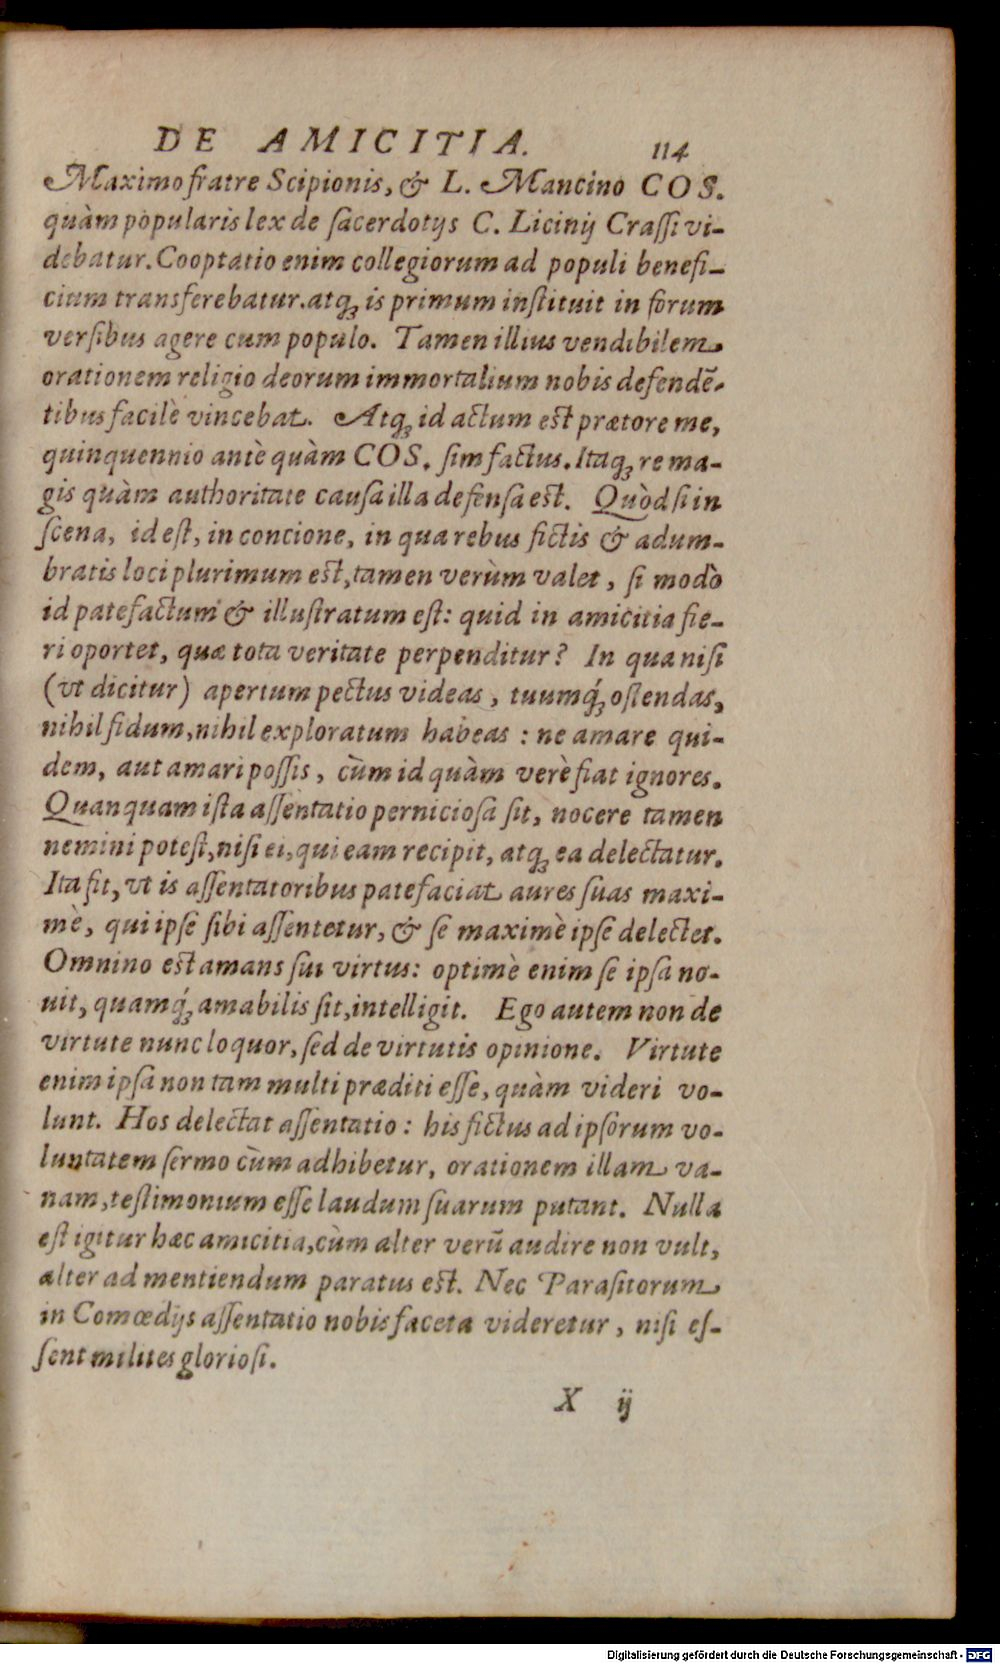 DE AMICITIA. 114
Maximo fratre Scipionis, & L. Mancino COS.
quàm popularis lex de ſacerdotijs C. Licinij Craſſi vi-
debatur. Cooptatio enim collegiorum ad populi benefi-
cium transferebatur. atqꝫ is primum inſtituit in forum
verſibus agere cum populo. Tamen illius vendibilem
orationem religio deorum immortalium nobis defendē-
tibus facilè vincebat. Atqꝫ id actum est prætore me,
quinquennio antè quàm COS. ſim factus. Itaqꝫ re ma-
gis quàm authoritate cauſa illa defenſa est. Quòd ſi in
ſcena, id eſt, in concione, in qua rebus fictis & adum-
bratis loci plurimum est, tamen verùm valet, ſi modò
id patefactum & illuſtratum eſt: quid in amicitia fie-
ri oportet, quæ tota veritate perpenditur? In qua niſi
(vt dicitur) apertum pectus videas, tuumq́ꝫ oſtendas,
nihil fidum, nihil exploratum habeas: ne amare qui-
dem, aut amari poſſis, cùm id quàm verè fiat ignores.
Quanquam iſta aſſentatio pernicioſa ſit, nocere tamen
nemini poteſt, niſi ei, qui eam recipit, atqꝫ ea delectatur.
Ita fit, vt is aſſentatoribus patefaciat aures ſuas maxi-
mè, qui ipſe ſibi aſſentetur, & ſe maximè ipſe delectet.
Omnino est amans ſui virtus: optimè enim ſe ipſa no-
uit, quamq́ꝫ amabilis ſit, intelligit. Ego autem non de
virtute nunc loquor, ſed de virtutis opinione. Virtute
enim ipſa non tam multi præditi eſſe, quàm videri vo-
lunt. Hos delectat aſſentatio: his fictus ad ipſorum vo-
luntatem ſermo cùm adhibetur, orationem illam va-
nam, teſtimonium eſſe laudum ſuarum putant. Nulla
eſt igitur hæc amicitia, cùm alter verū audire non vult,
alter ad mentiendum paratus est. Nec Paraſitorum
in Comœdijs aſſentatio nobis faceta videretur, niſi eſ-
ſent milites glorioſi.
X ij
Digitalisierung gefördert durch die Deutsche Forschungsgemeinschaft - DFG